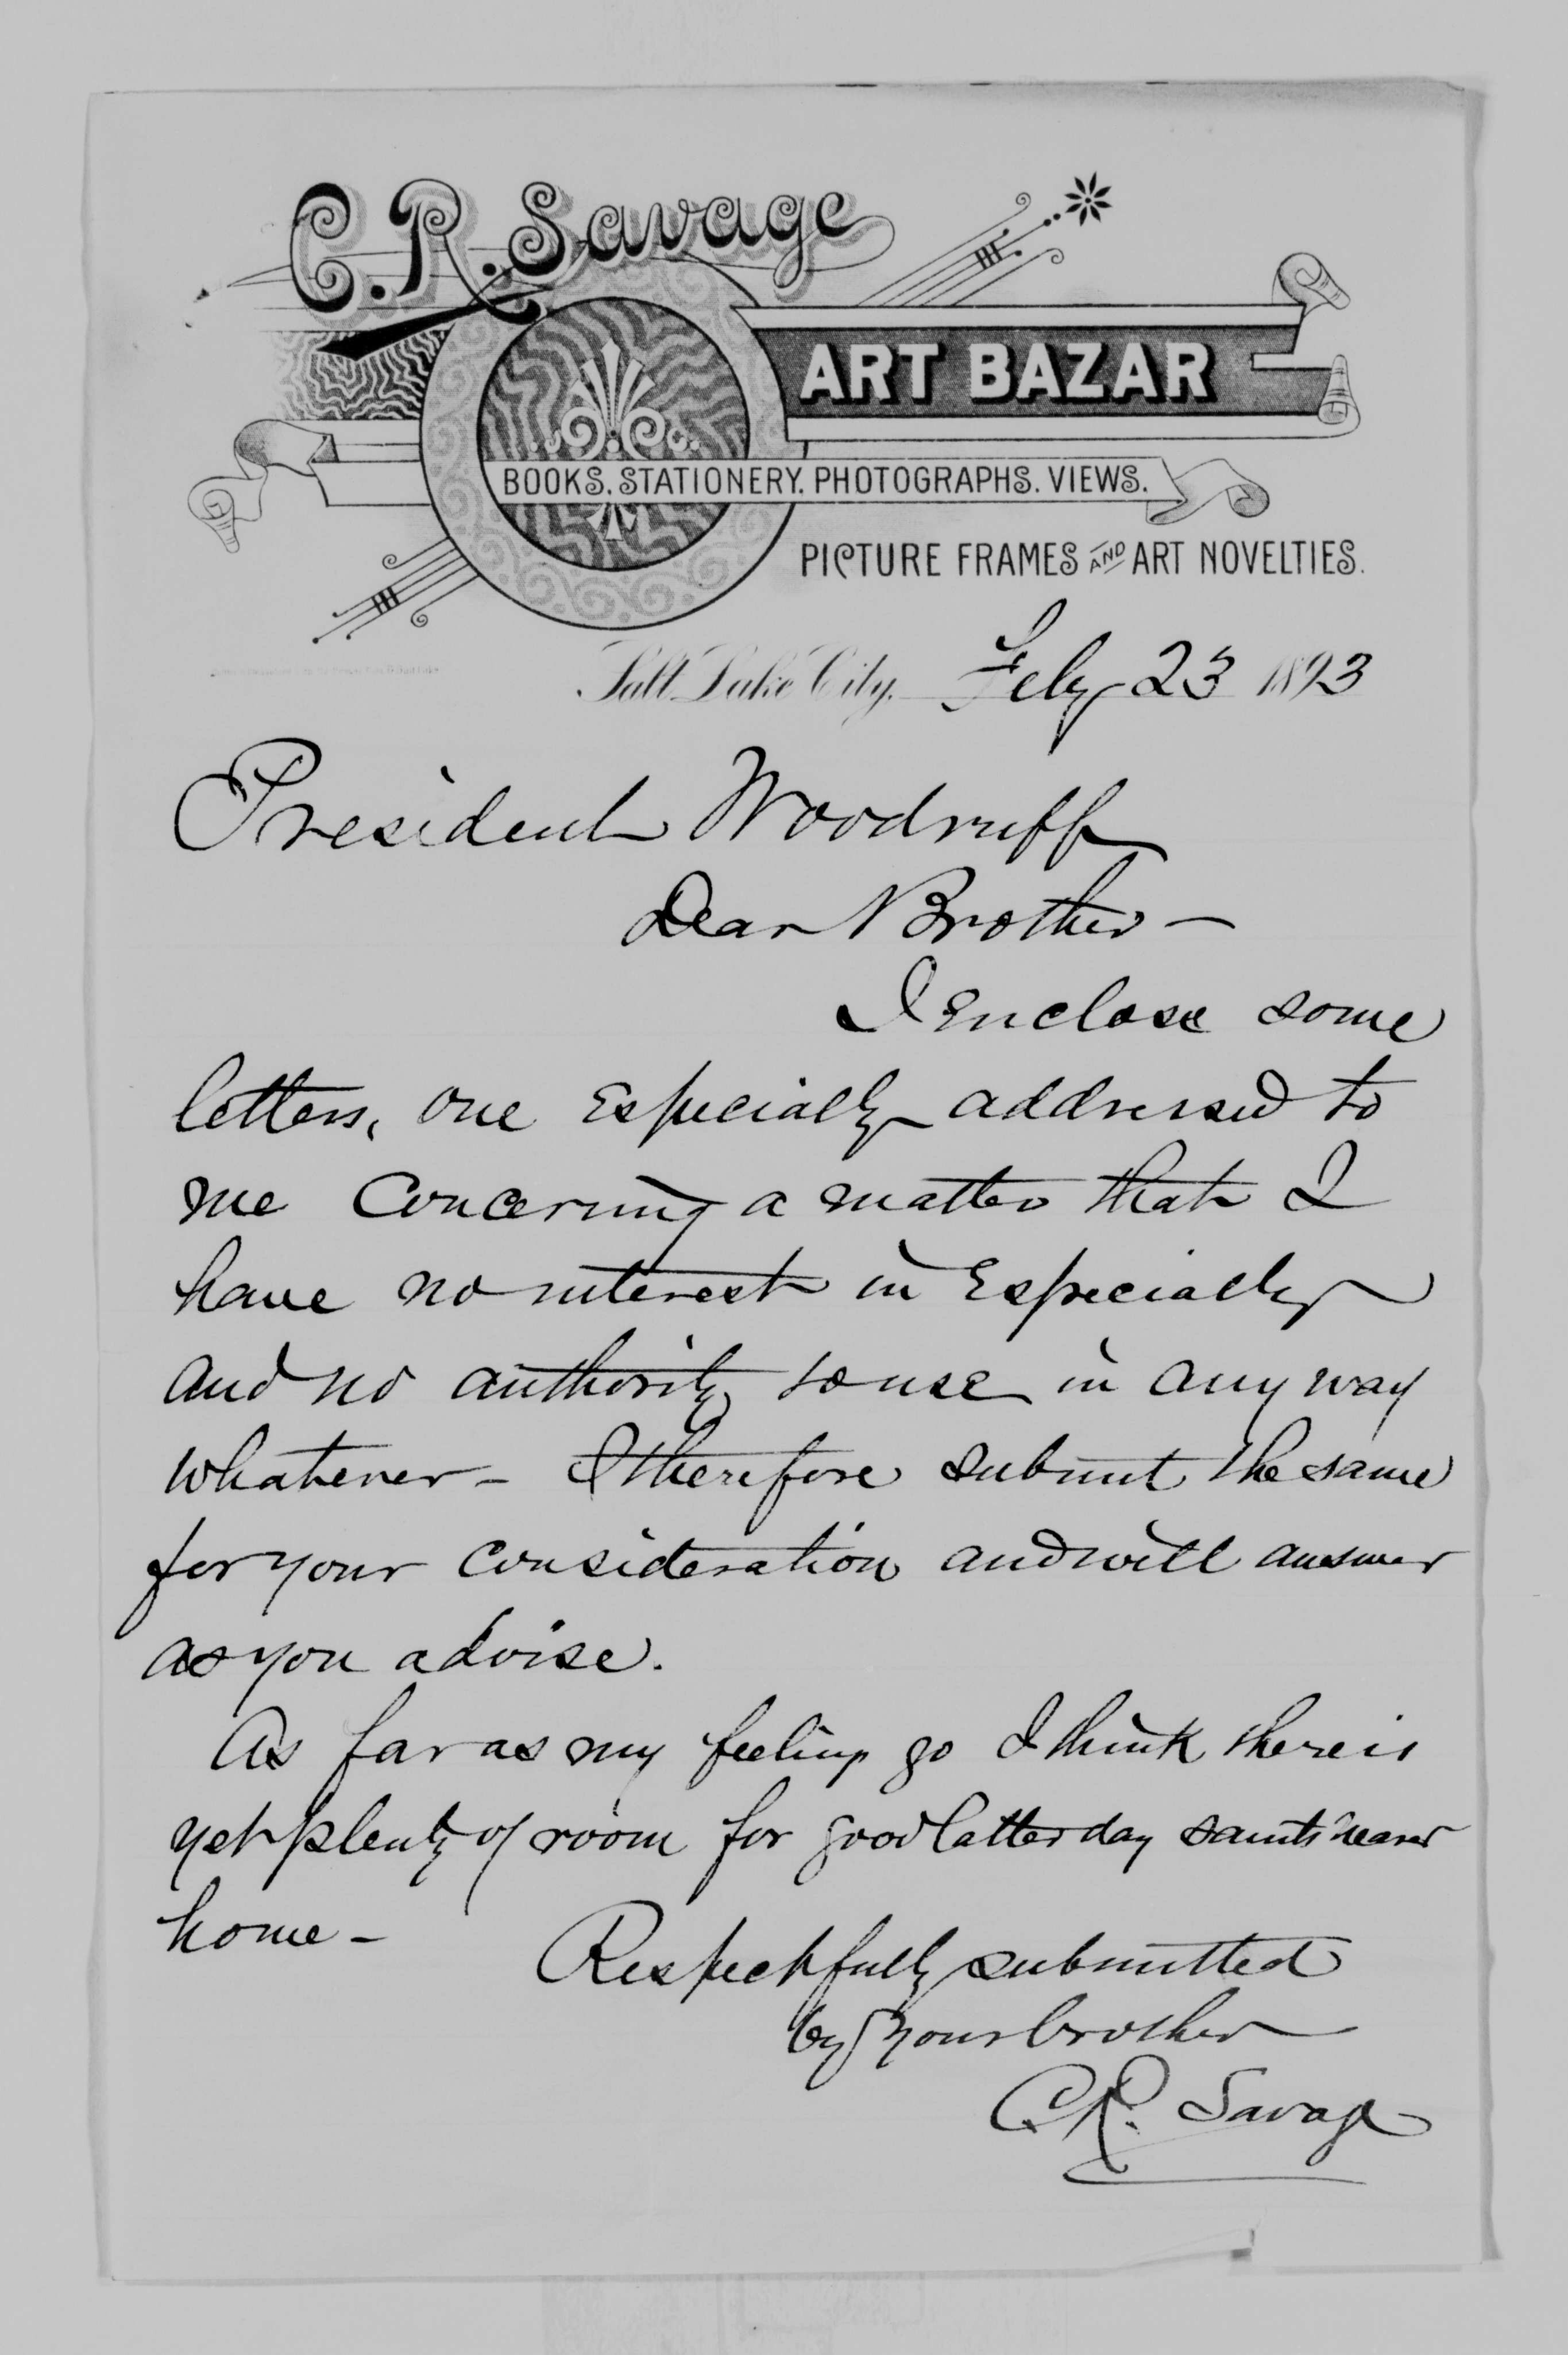 C.R. Savage
ART BAZAR
BOOKS. STATIONERY. PHOTOGRAPHS. VIEWS.
PICTURE FRAMES AND ART NOVELTIES.
Salt Lake City, Feby 23 1893
President Woodruff
Dear Brother —
I Enclose some
letters, one Especially addressed to
me Concerning a matter that I
have no interest in Especially
and no authority to use in any way
whatever – I therefore submit the same
for your consideration and will answer
as you advise.
As far as my feelings go I think there is
yet plenty of room for good latter day saints nearer
home –
Respectfully submitted
by your brother
C.R. Savage